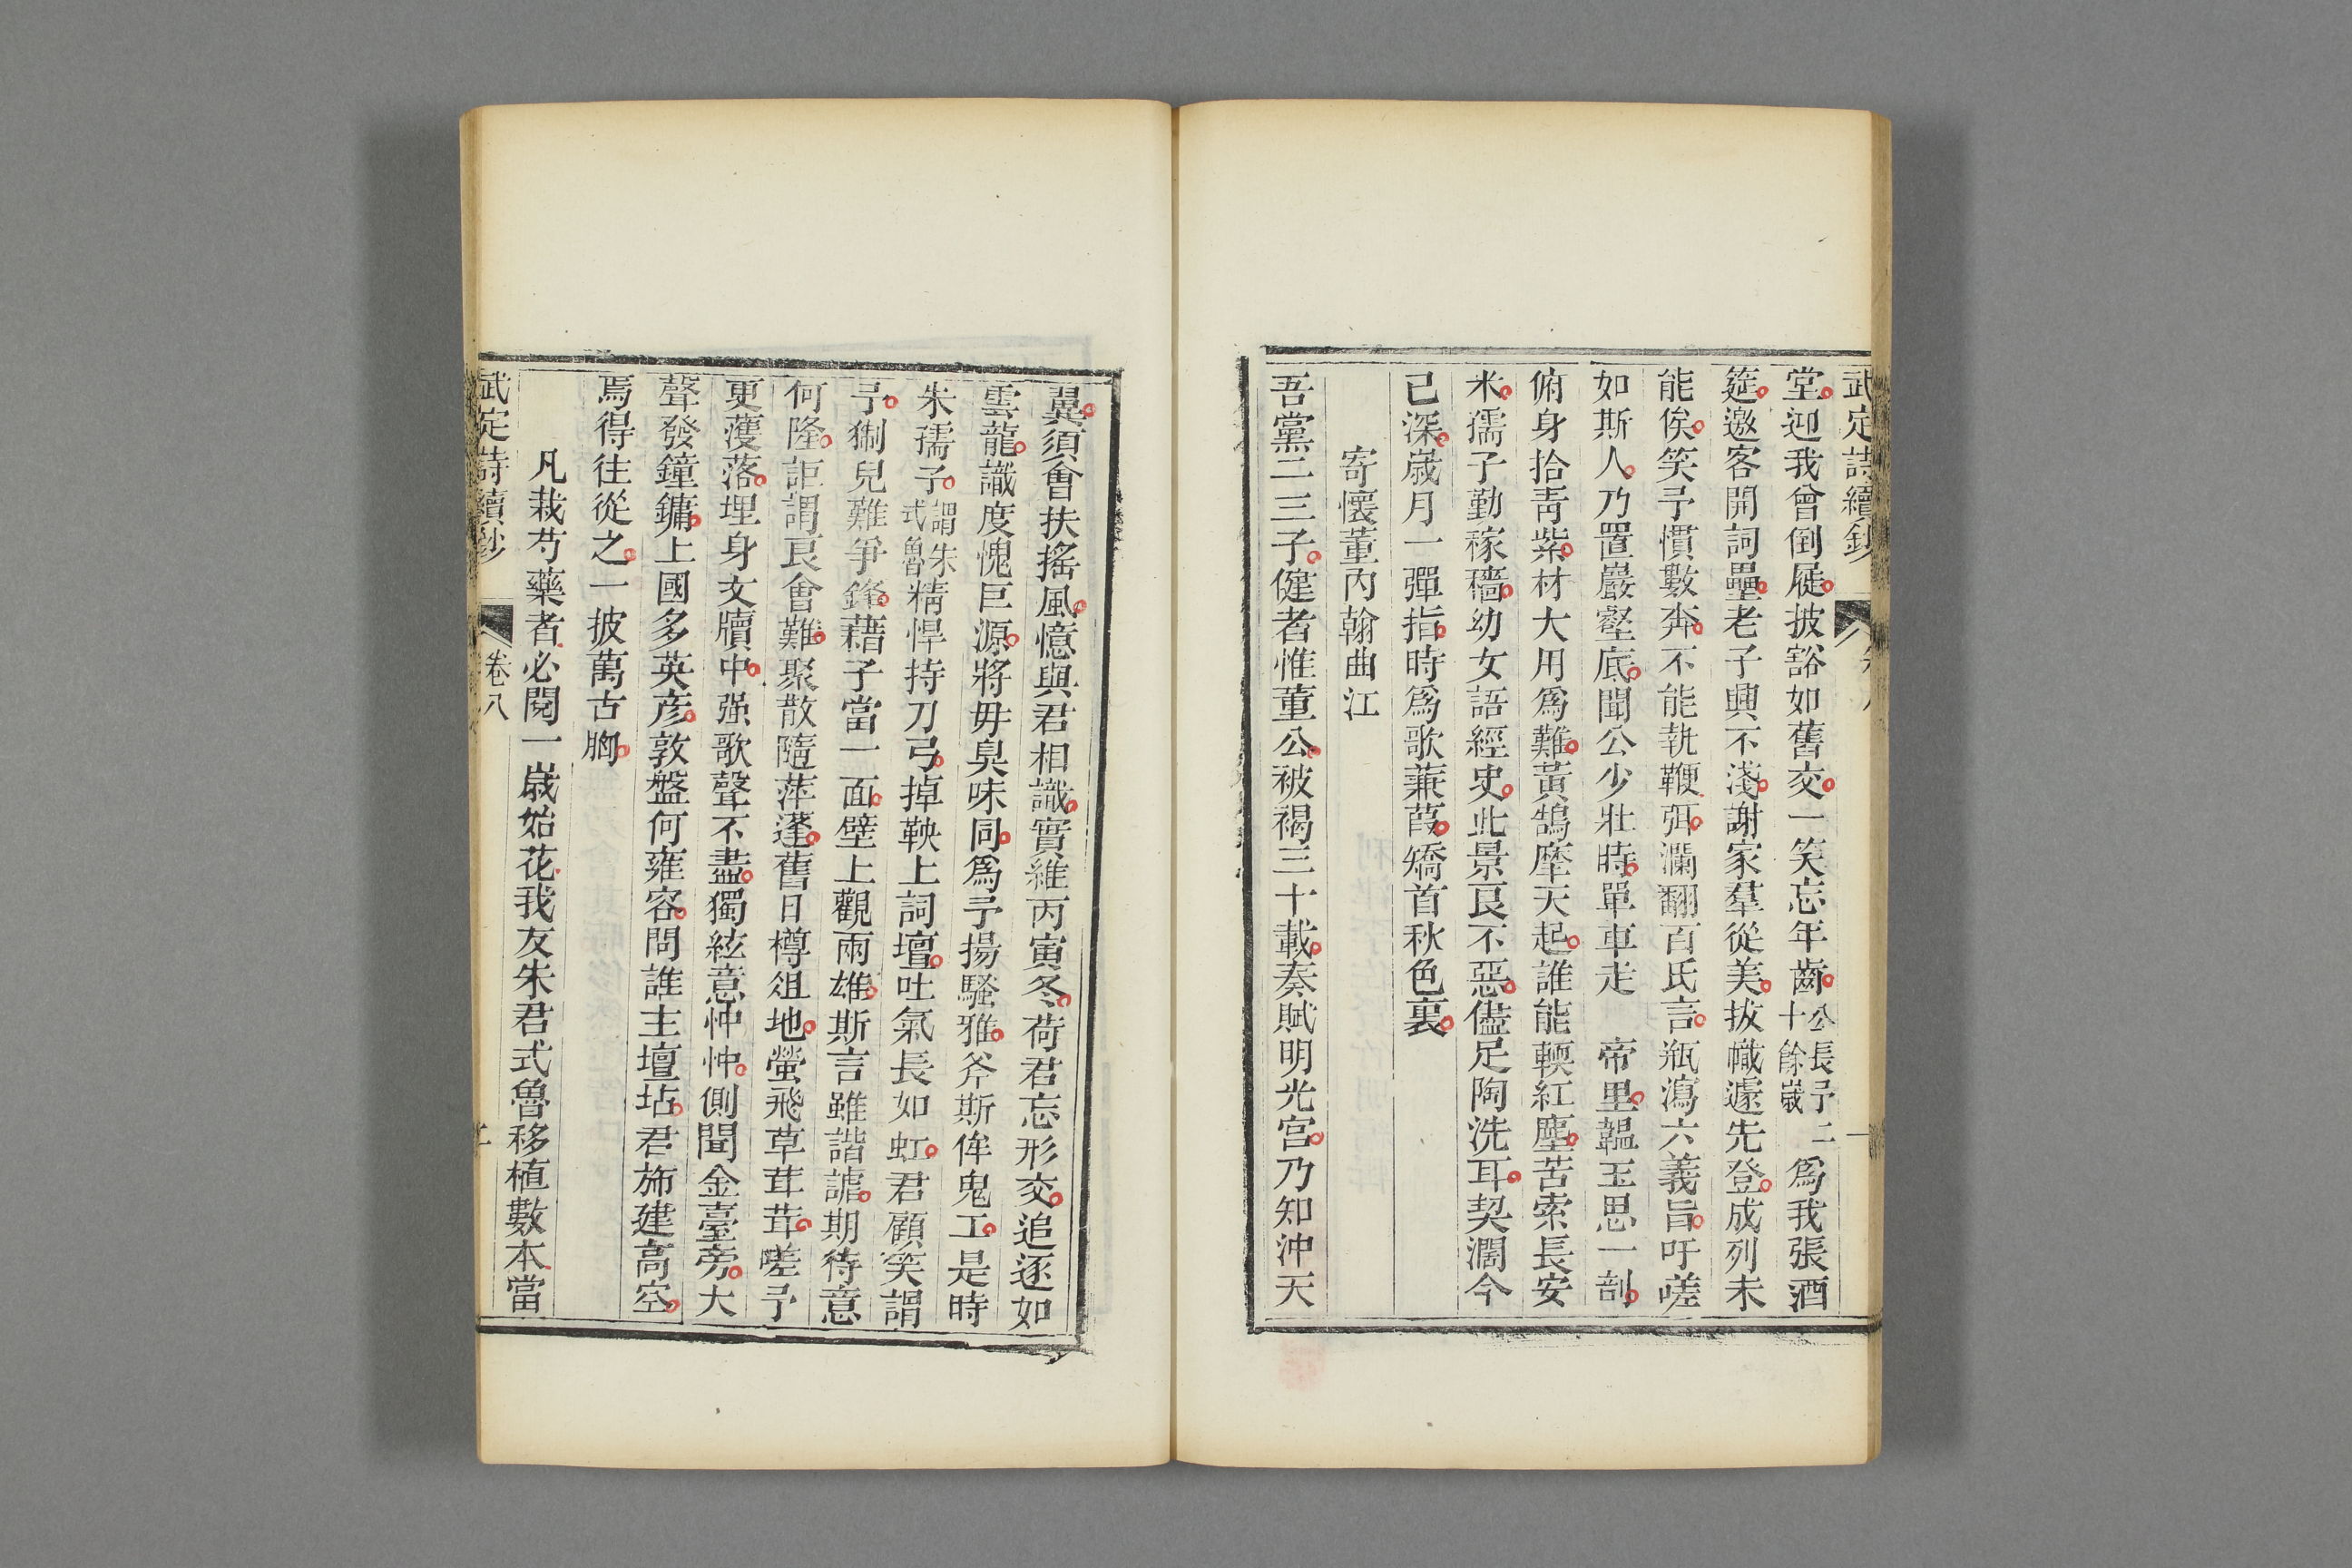 武定詩續鈔
卷八
一
堂迎我曾倒屣披豁如舊交一笑忘年齒公長予二十餘歲為我張酒
筵邀客開詞壘老子興不淺謝家羣從美拔幟遽先登成列未
能俟笑予慣數奔不能執鞭弭瀾翻百氏言瓶瀉六義旨吁嗟
如斯人乃置巖壑底聞公少壯時單車走 帝里韞玉思一剖
俯身拾青紫材大用爲難黃鵠摩天起誰能輭紅塵苦索長安
米孺子勤稼穡幼女語經史此景良不惡儘足陶洗耳契濶今
已深歲月一彈指時爲歌蒹葭矯首秋色裏
寄懷董內翰曲江
吾黨二三子健者惟董公被褐三十載奏賦明光宮乃知沖天
翼須會扶搖風憶與君相識實維丙寅冬荷君忘形交追逐如
雲龍識度愧巨源將毋臭味同爲予揚騷雅斧斯侔鬼工是時
朱孺子謂朱式魯精悍持刀弓掉鞅上詞壇吐氣長如虹君顧笑謂
予猘兒難爭鋒藉子當一面壁上觀兩雄斯言雖諧謔期待意
何隆詎謂良會難聚散隨萍蓬舊日樽俎地螢飛草茸茸嗟予
更濩落埋身文牘中强歌聲不盡獨絃意忡忡側聞金臺旁大
聲發鐘鏞上國多英彥敦盤何雍容問誰主壇坫君旆建高空
焉得往從之一披萬古胸
凡栽芍藥者必閱一歲始花我友朱君式魯移植數本當
武定詩續鈔
卷八